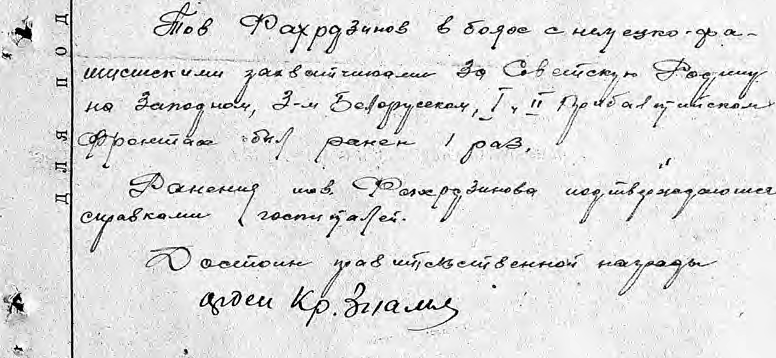 Тов Фахрдзинов в боях с немецко-фа-
шистскими захватчиками за Советскую Родину
на Западном, 3-м Белорусском, I и II Прибалтийском
фронтах был ранен 1 раз.
Ранения тов. Фахрдзинова подтверждаются
справками госпиталей.
Достоин правительственной награды
орден Кр. Знамя
ДЛЯ ПОД